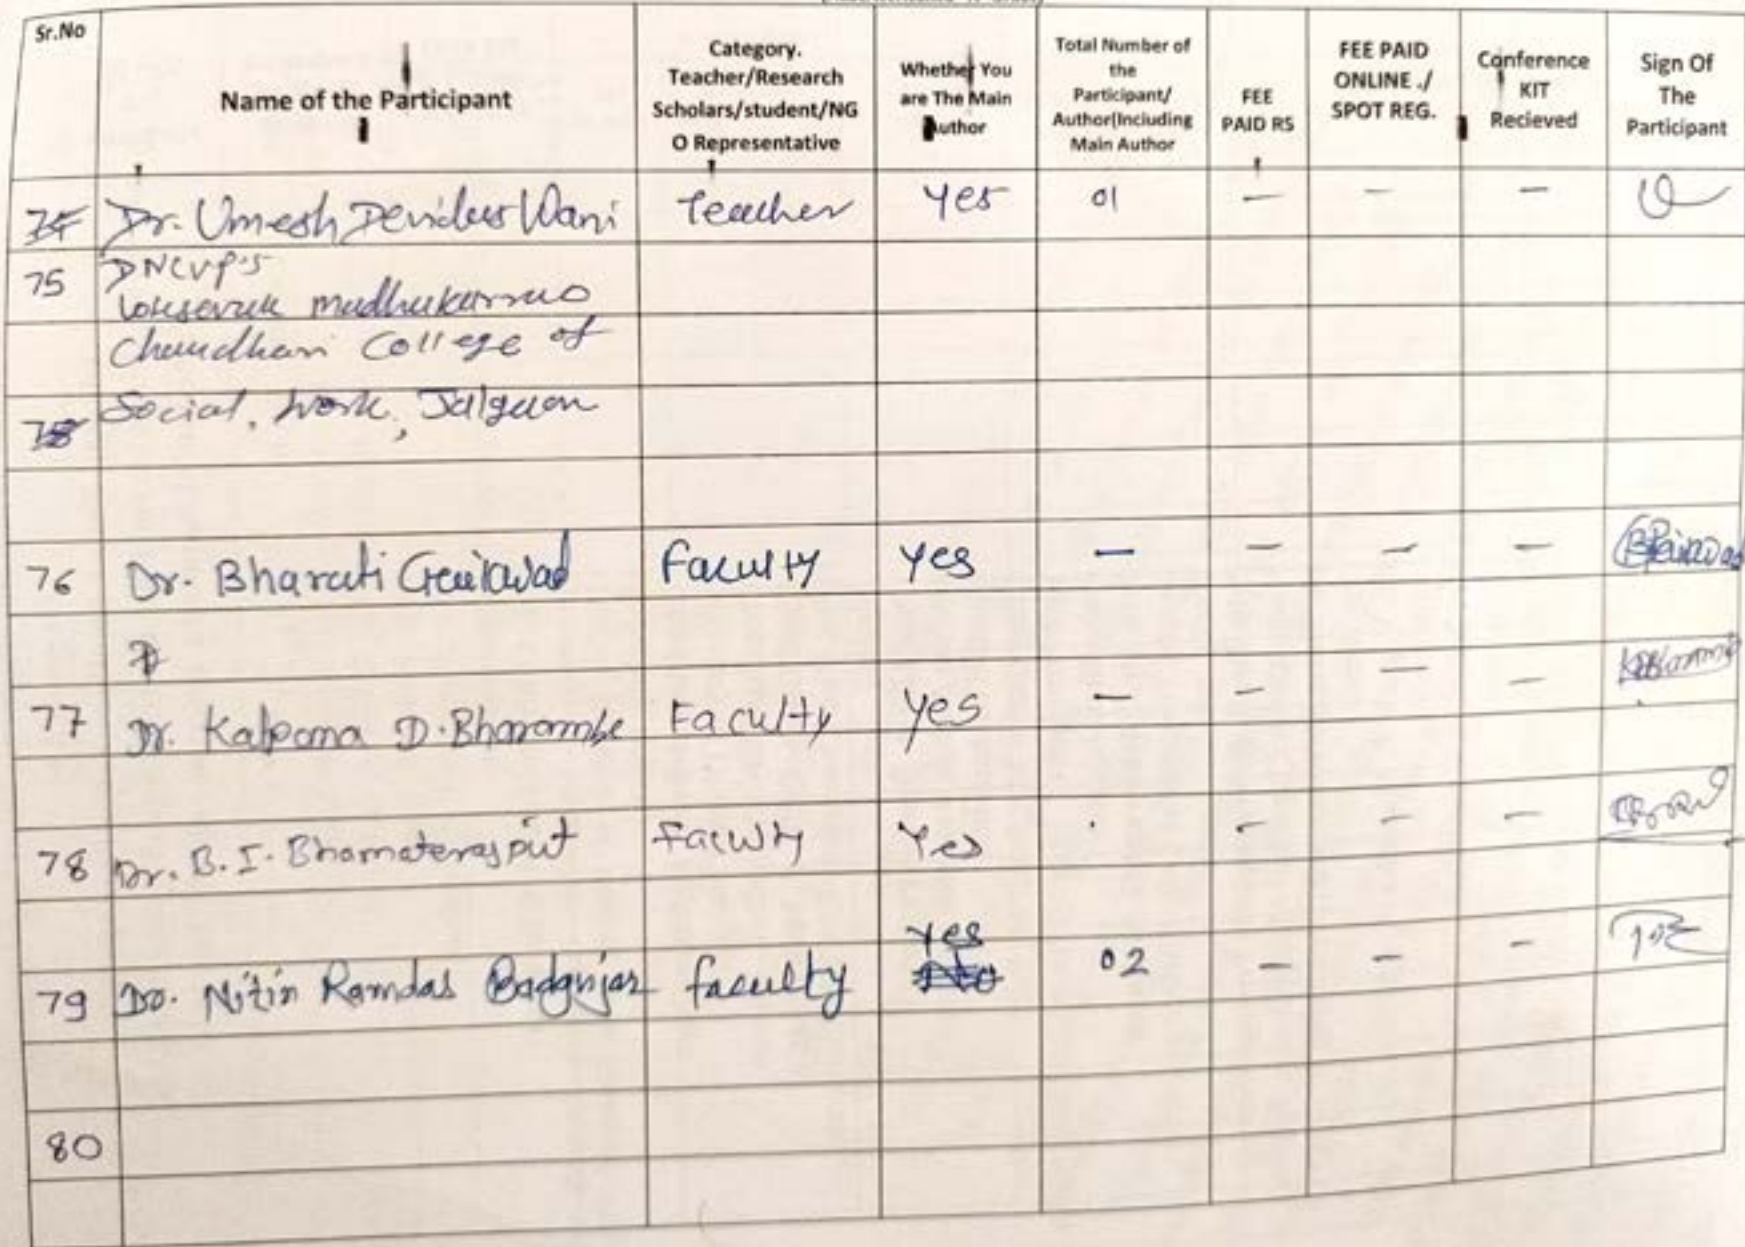 Sr.No
Name of the Participant
Category.
Teacher/Research
Scholars/student/NG
O Representative
Whether You
are The Main
Author
Total Number of
the
Participant/
Author(Including
Main Author
FEE
PAID RS
FEE PAID
ONLINE ./
SPOT REG.
Conference
KIT
Recieved
Sign Of
The
Participant
Dr. Umesh Devidas Wani Teacher Yes 01 — — —
75 DNCVP's
madhukarrao
Chaudhari College of
Social, Work, Jalgaon
76 Dr. Bharati Gaikwad Faculty Yes — — — —
77 Dr. Kalpana D. Bharambe Faculty Yes — — — —
78 Dr. B.I. Faculty Yes — — —
Yes
79 Dr. Nitin Ramdas Badgujar faculty 02 — — —
80